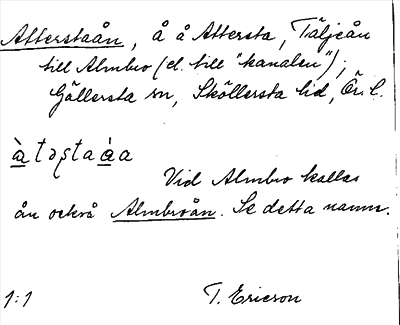 Atterstaån, å å Attersta, Täljeån
till Almbro (el. till "kanalen");
Gällersta sn, Sköllersta hd, Ör. l.
àtəʂtaàa
Vid Almbro kallas
ån också Almbroån. Se detta namn.
1:1 T. Ericson